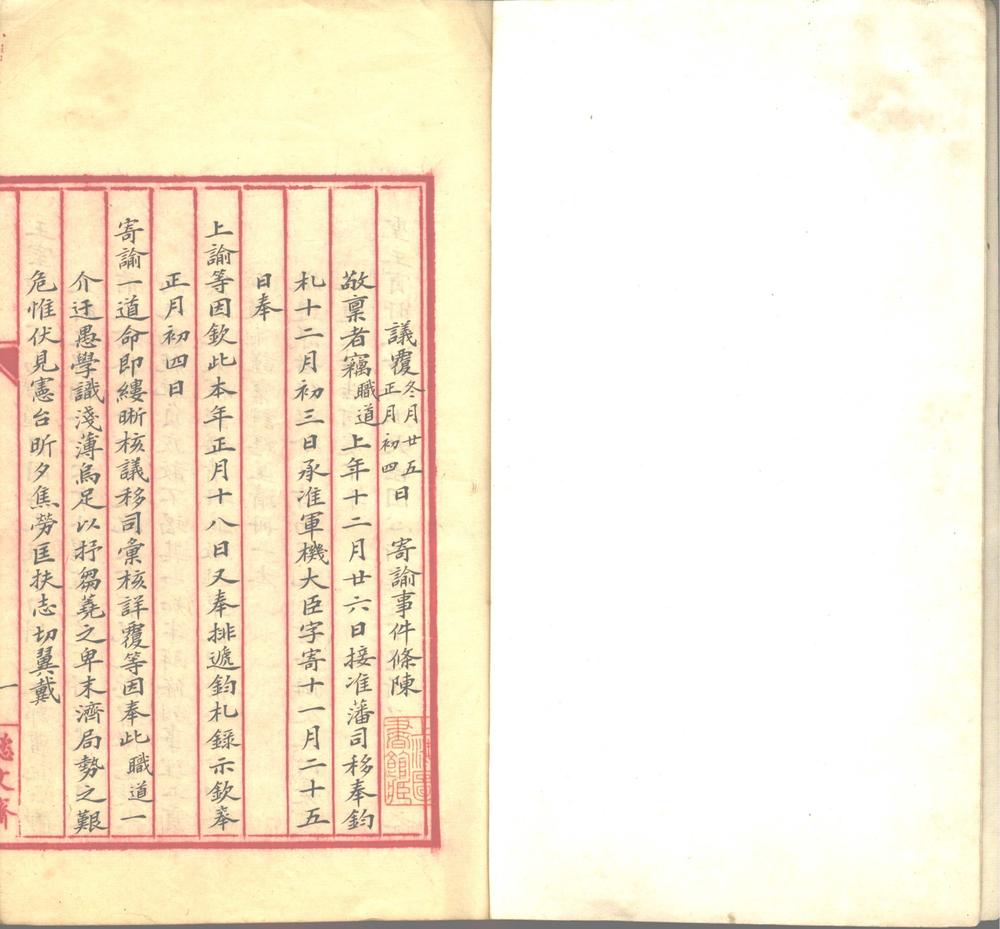 議覆冬月廿五正月初四日寄諭事件條陳
敬稟者竊職道上年十二月廿六日接准藩司移奉鈞
札十二月初三日承准軍機大臣字寄十一月二十五
日奉
上諭等因欽此本年正月十八日又奉排遞鈞札錄示欽奉
正月初四日
寄諭一道命即縷晰核議移司彙核詳覆等因奉此職道一
介迂愚學識淺薄烏足以抒芻蕘之卑末濟局勢之艱
危惟伏見憲台昕夕焦勞匡扶志切翼戴
一
懿文齋